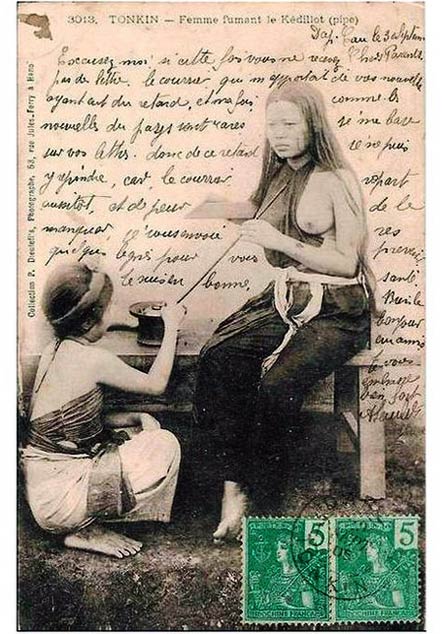 3013. TONKIN — Femme fumant le Kédillot (pipe)
Collection P. Dieulefils, Photographe, 53, rue Jules-Ferry à Hanoï
Cau le 3
Chers Parents
Excusez moi si cette fois vous ne
pas de lettre. le courrier qui m'apportait de vos nouvelles
ayant eu du retard, et ma foi comme les
nouvelles du pays sont rares je me base
sur vos lettres. donc de ce retard je ne puis
y répondre, car le courrier repart
aussitôt, et de peur de le
manquer je vous envoie
quelques lignes pour vous
santé.
bonne,
bonjour
aux amis
je vous
embrasse
bien fort
POSTES 5
INDOCHINE FRANÇAISE
POSTES 5
INDOCHINE FRANÇAISE